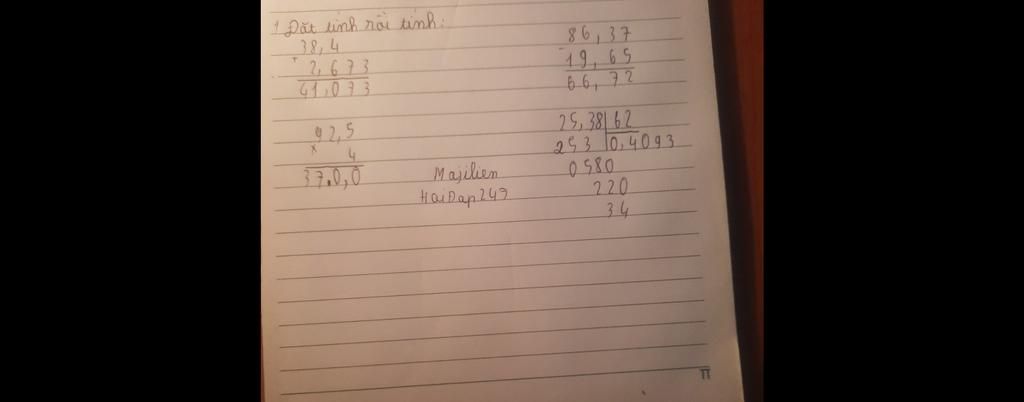 1 Đặt tính rồi tính:
38,4
+
2,673
41,073
86,37
-
19,65
66,72
92,5
x
4
37,0,0
25,38 62
253 0,4093
0580
220
34
Majilien
HoiDap249